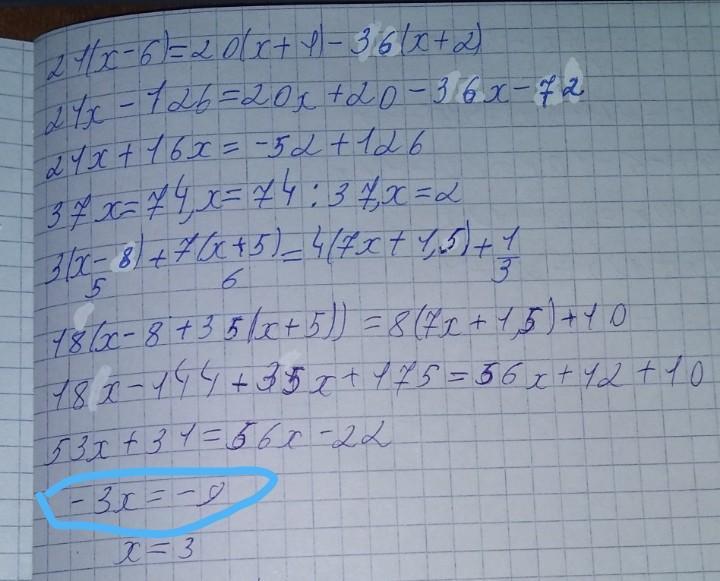 21(x-6)=20(x+1)-36(x+2)
21x-126=20x+20-36x-72
21x+16x=-52+126
37x=74, x=74:37, x=2
3(x-8)/5+7(x+5)/6=4(7x+1,5)+1/3
18(x-8+35(x+5))=8(7x+1,5)+10
18x-144+35x+175=56x+12+10
53x+31=56x-22
-3x=-9
x=3